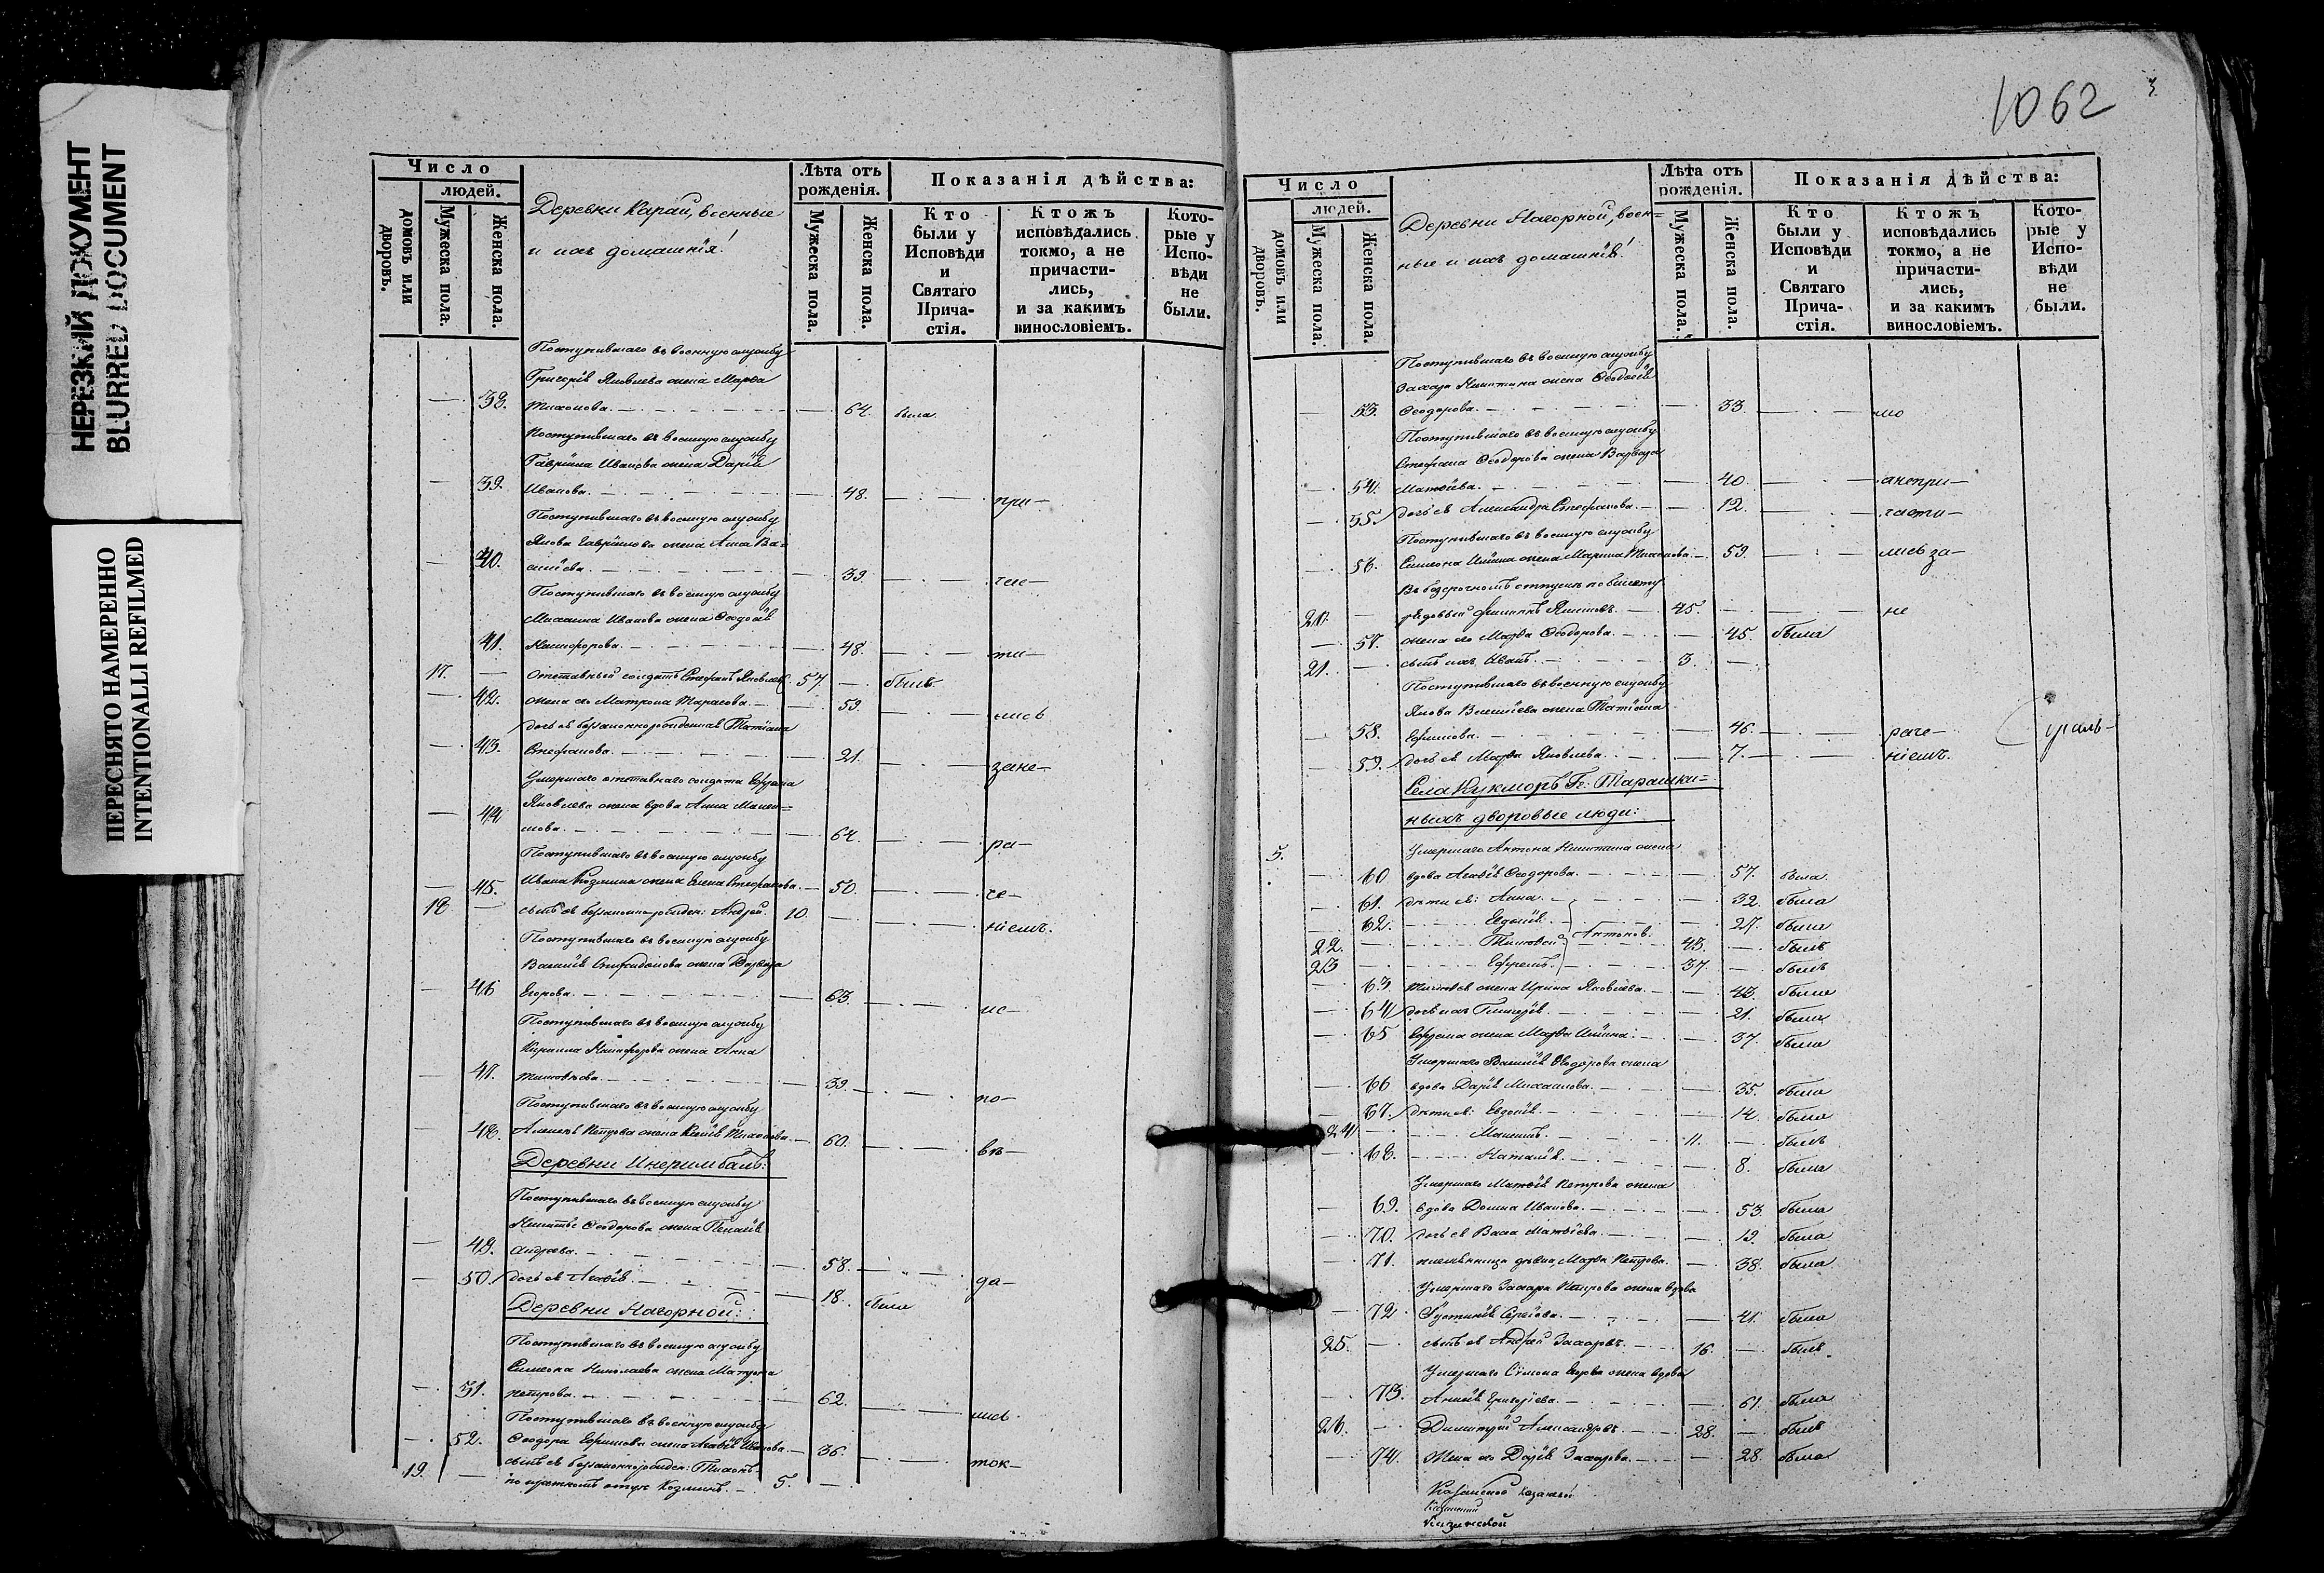 НЕРЕЗКИЙ ДОКУМЕНТ
BLURRED DOCUMENT
ПЕРЕСНЯТО НАМЕРЕННО
INTENTIONALLI REFILMED
Число
людей.
домовъ или дворовъ.
Мужеска пола.
Женска пола.
Деревни Карай, военные
и ихъ домашнія!
Лѣта отъ рожденія.
Мужеска пола.
Женска пола.
Показанія дѣйства:
Кто были у Исповѣди и Святаго Прича-стія.
Ктожъ исповѣдались токмо, а не причасти-лись, и за какимъ винословіемъ.
Кото-рые у Испо-вѣди не были.
Поступившаго въ военную службу
Григорія Яковлева жена Марѳа
— 38. Тихонова. — 64. была
Поступившаго въ военную службу
Гавріила Иванова жена Дарія
— 39. Иванова. — 48. — при-
Поступившаго въ военную службу
Якова Гавріилова жена Анна Ва=
— 40. силіева. — 39.
Поступившаго въ военную службу
Михаила Иванова жена Ѳеодосія
— 41. Никифорова. — 48. — ти-
17. — Отставный солдатъ Стефанъ Яковлевъ. 57 — былъ
— 42. жена его Матрона Тарасова. — 59. — лись
дочь ея беззаконнорожденная Татіана
— 43. Стефанова. — 21. — зане-
Умершаго отставнаго солдата Ефрема
Яковлева жена вдова Анна
— 44. 64. — ра-
Поступившаго въ военную службу
— 45. Ивана Козмина жена Елена Стефанова. — 50. — че-
18 — сынъ ея беззаконнорожден: Андрей. 10. — ніемъ.
Поступившаго въ военную службу
Василія Спиридонова жена Варвара
— 46 Егорова. — 63. — ис-
Поступившаго въ военную службу
Кирилла Никифорова жена Анна
— 47. Тимоѳеева. — 39. — по-
Поступившаго въ военную службу
— 48. Алексѣя Петрова жена Ксенія Тихонова. — 60. — вѣ-
Деревни
Поступившаго въ военную службу
Ѳеодорова жена Пелагія
— 49. Андреева. — 58. — да-
— 50. дочь ея Агаѳія. — 18. была
Деревни Нагорной:
Поступившаго въ военную службу
Симеона Николаева жена Матрона
— 51. Петрова. — 62. — лись
Поступившаго въ военную службу
— 52. Ѳеодора Ефимова жена Агаѳія Иванова. — 36. — ток-
сынъ ея беззаконнорожден: Тихонъ
19. — Козминъ. — 5. —
1062
Число
людей.
домовъ или дворовъ.
Мужеска пола.
Женска пола.
Деревни Нагорной, воен=
ные и ихъ домашнія!
Лѣта отъ рожденія.
Мужеска пола.
Женска пола.
Показанія дѣйства:
Кто были у Исповѣди и Святаго Прича-стія.
Ктожъ исповѣдались токмо, а не причасти-лись, и за какимъ винословіемъ.
Кото-рые у Испо-вѣди не были.
Поступившаго въ военную службу
Захара Никитина жена Ѳеодосія
— 53. Ѳеодорова. — 33. — мо
Поступившаго въ военную службу
Стефана Ѳеодорова жена Варвара
— 54. Матвѣева. — 40. — анепри-
— 55. дочь ея Александра Стефанова. — 12. — части-
Поступившаго въ военную службу
— 56. Симеона Ильина жена Марина Тихонова. — 59. — лись за-
Въ безсрочномъ отпуску по билету
20. — рядовый Филиппъ — 45. — не
— 57. жена его Марѳа Ѳеодорова. — 45. была
21. — сынъ ихъ Иванъ. — 3. —
Поступившаго въ военную службу
Якова Василіева жена Татіана
— 58. Ефимова. — 46. — раче-
— 59. дочь ея Марѳа Яковлева. — 7. — ніемъ.
Села Кукморъ Г. Тарашки=
ныхъ дворовые люди:
5.
Умершаго Антона Никитина жена
— 60 вдова Агаѳія Ѳеодорова. — 57. была
— 61. дѣти ея: Анна. — 32. была
— 62. — Евдокія. — Антонов. — 27. была
22. — Тимоѳей — 43. — былъ
23 — Ефремъ. — 37. — былъ
— 63. жена Ирина Яковлева. — 43. была
— 64. дочь ихъ Гликерія. — 21. была
— 65 Ефрема жена Марѳа Ильина. — 37. была
Умершаго Василія Ѳеодорова жена
— 66 вдова Дарія Михаилова. — 35. была
— 67. дѣти ея: Евдокія. — 14. была
24 — 11. — былъ
— 68. — Наталія. — 8. была
Умершаго Матѳія Петрова жена
— 69. вдова Домна Иванова. — 53. была
— 70. дочь ея Васса Матѳіева. — 19. была
— 71. племянница дѣвка Марѳа Петрова. — 38. была
Умершаго Захара Петрова жена вдова
— 72 Іустинія Сергіева. — 41. была
25. — сынъ ея Андрей Захаровъ. — 16. — былъ
Умершаго Симона Егорова жена вдова
— 73. Григоріева. — 61. была
26. — Димитрій Александровъ. — 28. — былъ
— 74. Жена его Дарія Захарова. — 28. была
Казанской Казанской